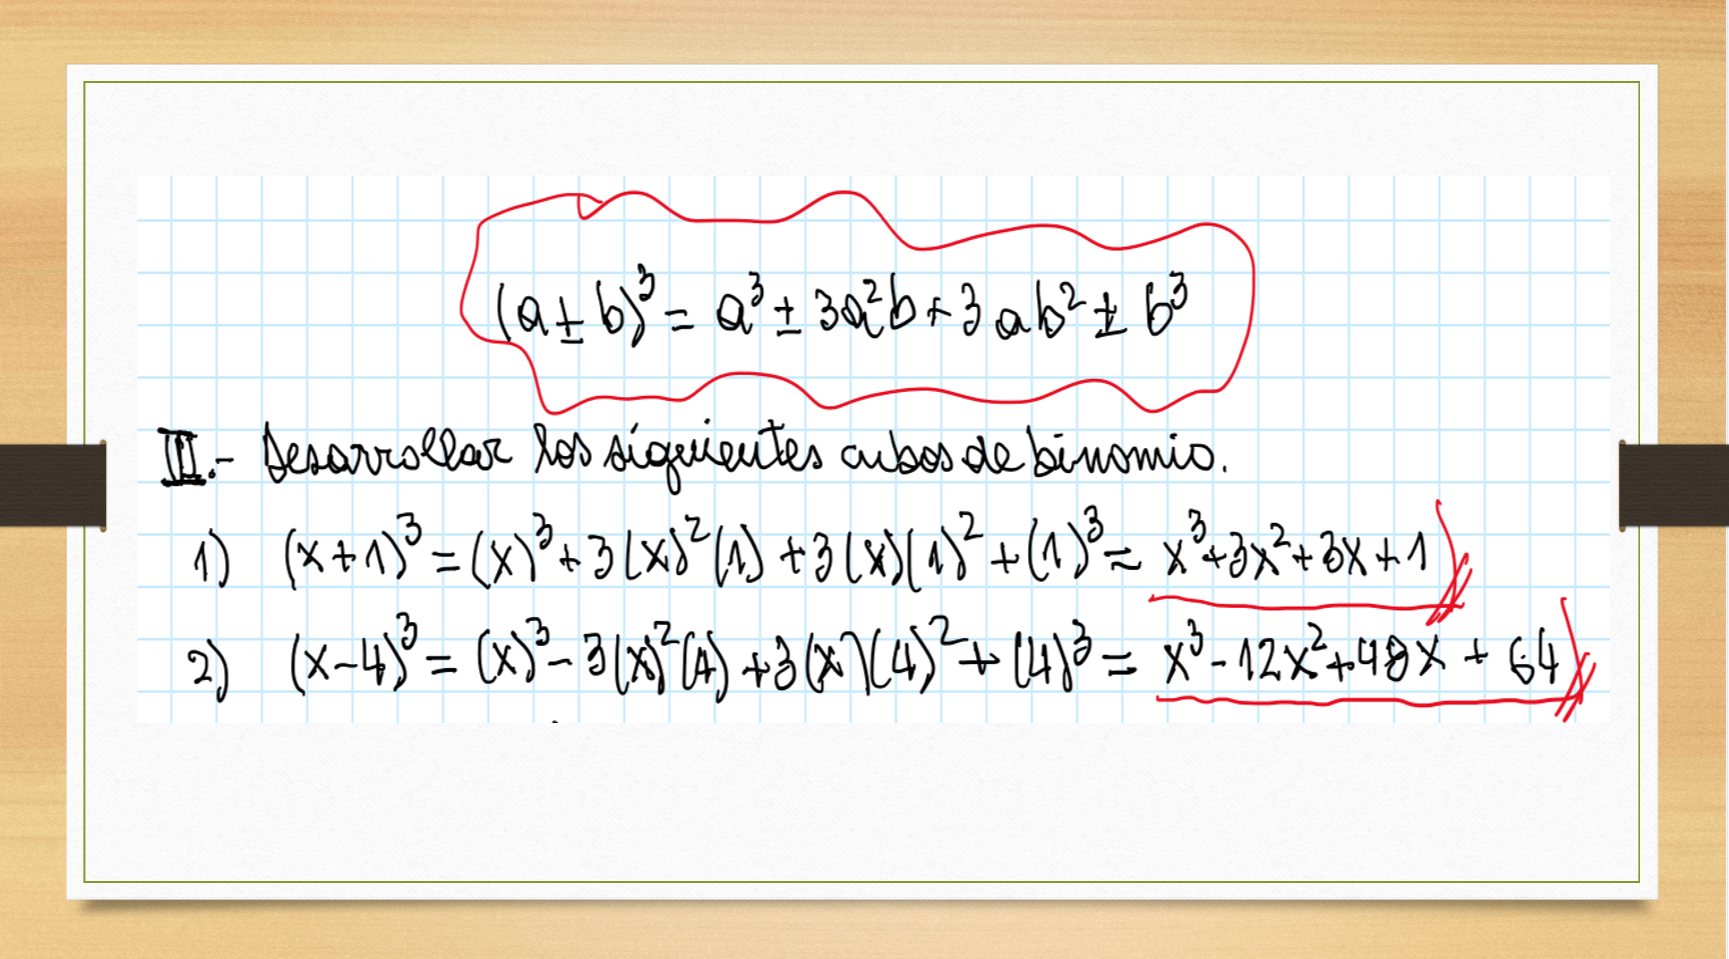 (a ± b)³ = a³ ± 3a²b + 3ab² ± b³
III.- Desarrollar los siguientes cubos de binomio.
1) (x+1)³ = (x)³ + 3(x)²(1) + 3(x)(1)² + (1)³ = x³+3x²+3x+1
2) (x-4)³ = (x)³ - 3(x)²(4) + 3(x)(4)² + (4)³ = x³ - 12x² + 48x + 64